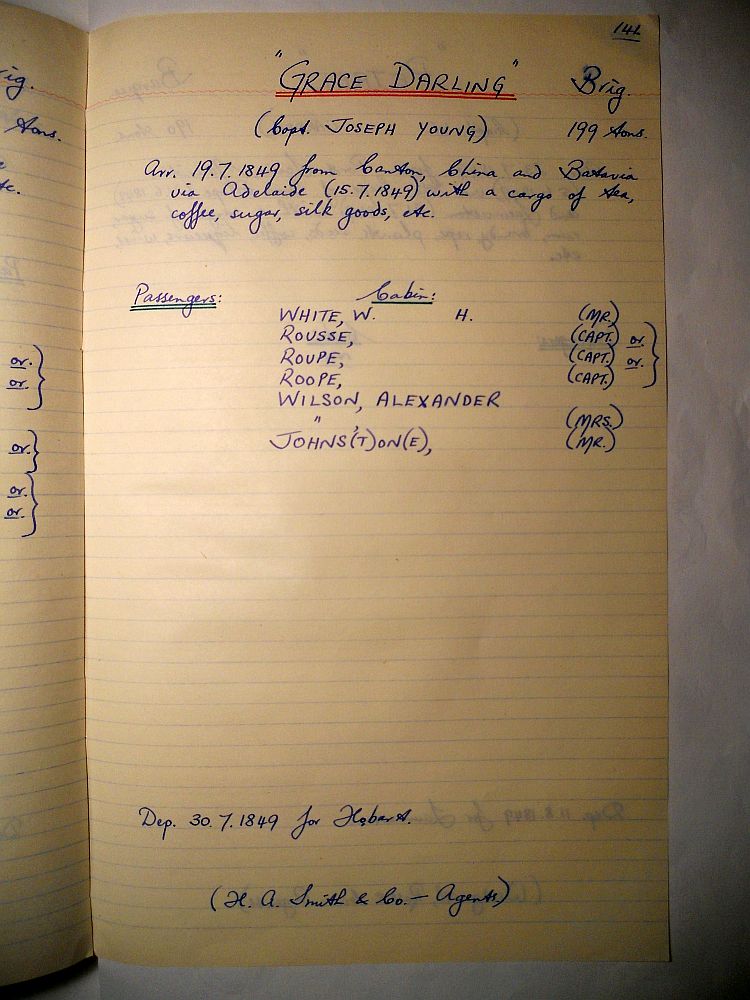 141
"GRACE DARLING" Brig.
(Capt. JOSEPH YOUNG) 199 tons.
Arr. 19.7.1849 from Canton, China and Batavia
via Adelaide (15.7.1849) with a cargo of tea,
coffee, sugar, silk goods, etc.
Passengers: Cabin:
WHITE, W. H. (MR.)
ROUSSE, (CAPT.) or.
ROUPE, (CAPT.) or.
ROOPE, (CAPT.)
WILSON, ALEXANDER
" , (MRS.)
JOHNS(T)ON(E), (MR.)
Dep. 30.7.1849 for Hobart.
(H. A. Smith & Co. - Agents)
ig.
tons.
tc.
or.
or.
or.
or.
or.